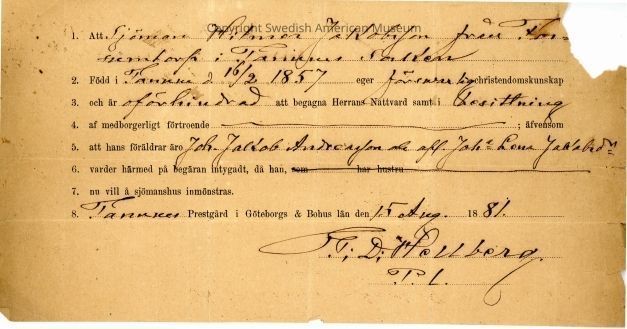 Copyright Swedish American Museum
1. Att Sjöman Hilmer Jakobson från
i Tanums Socken
2. Född i Tanum d 16/2 1857 eger christendomskunskap
3. och är oförhindrad att begagna Herrans Nattvard samt i besittning
4. af medborgerligt förtroende ; äfvensom
5. att hans föräldrar äro Joh. Jakob Andersson
6. varder härmed på begäran intygadt, då han, som har hustru
7. nu vill å sjömanshus inmönstras.
8. Tanums Prestgård i Göteborgs & Bohus län den 15 Aug. 1881.
Hellberg.